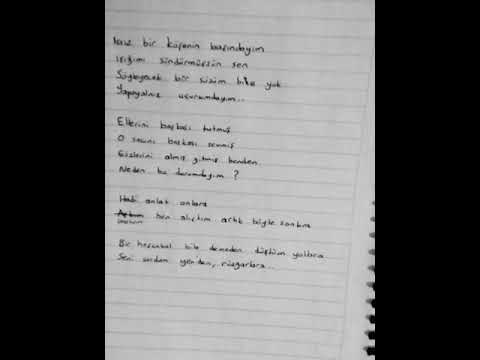 bir köşenin başındayım
ışığımı söndürmüşsün sen
Söyleyecek bir sözüm bile yok
Yapayalnız uçurumdayım..
Ellerini başkası tutmuş
O seni başkası sevmiş
Gözlerini almış gitmiş benden
Neden bu durumdayım ?
Hadi anlat onlara
ben alıştım artık böyle
Bir hoşçakal bile demeden düştüm yollara
Seni sordum yeniden, rüzgarlara..